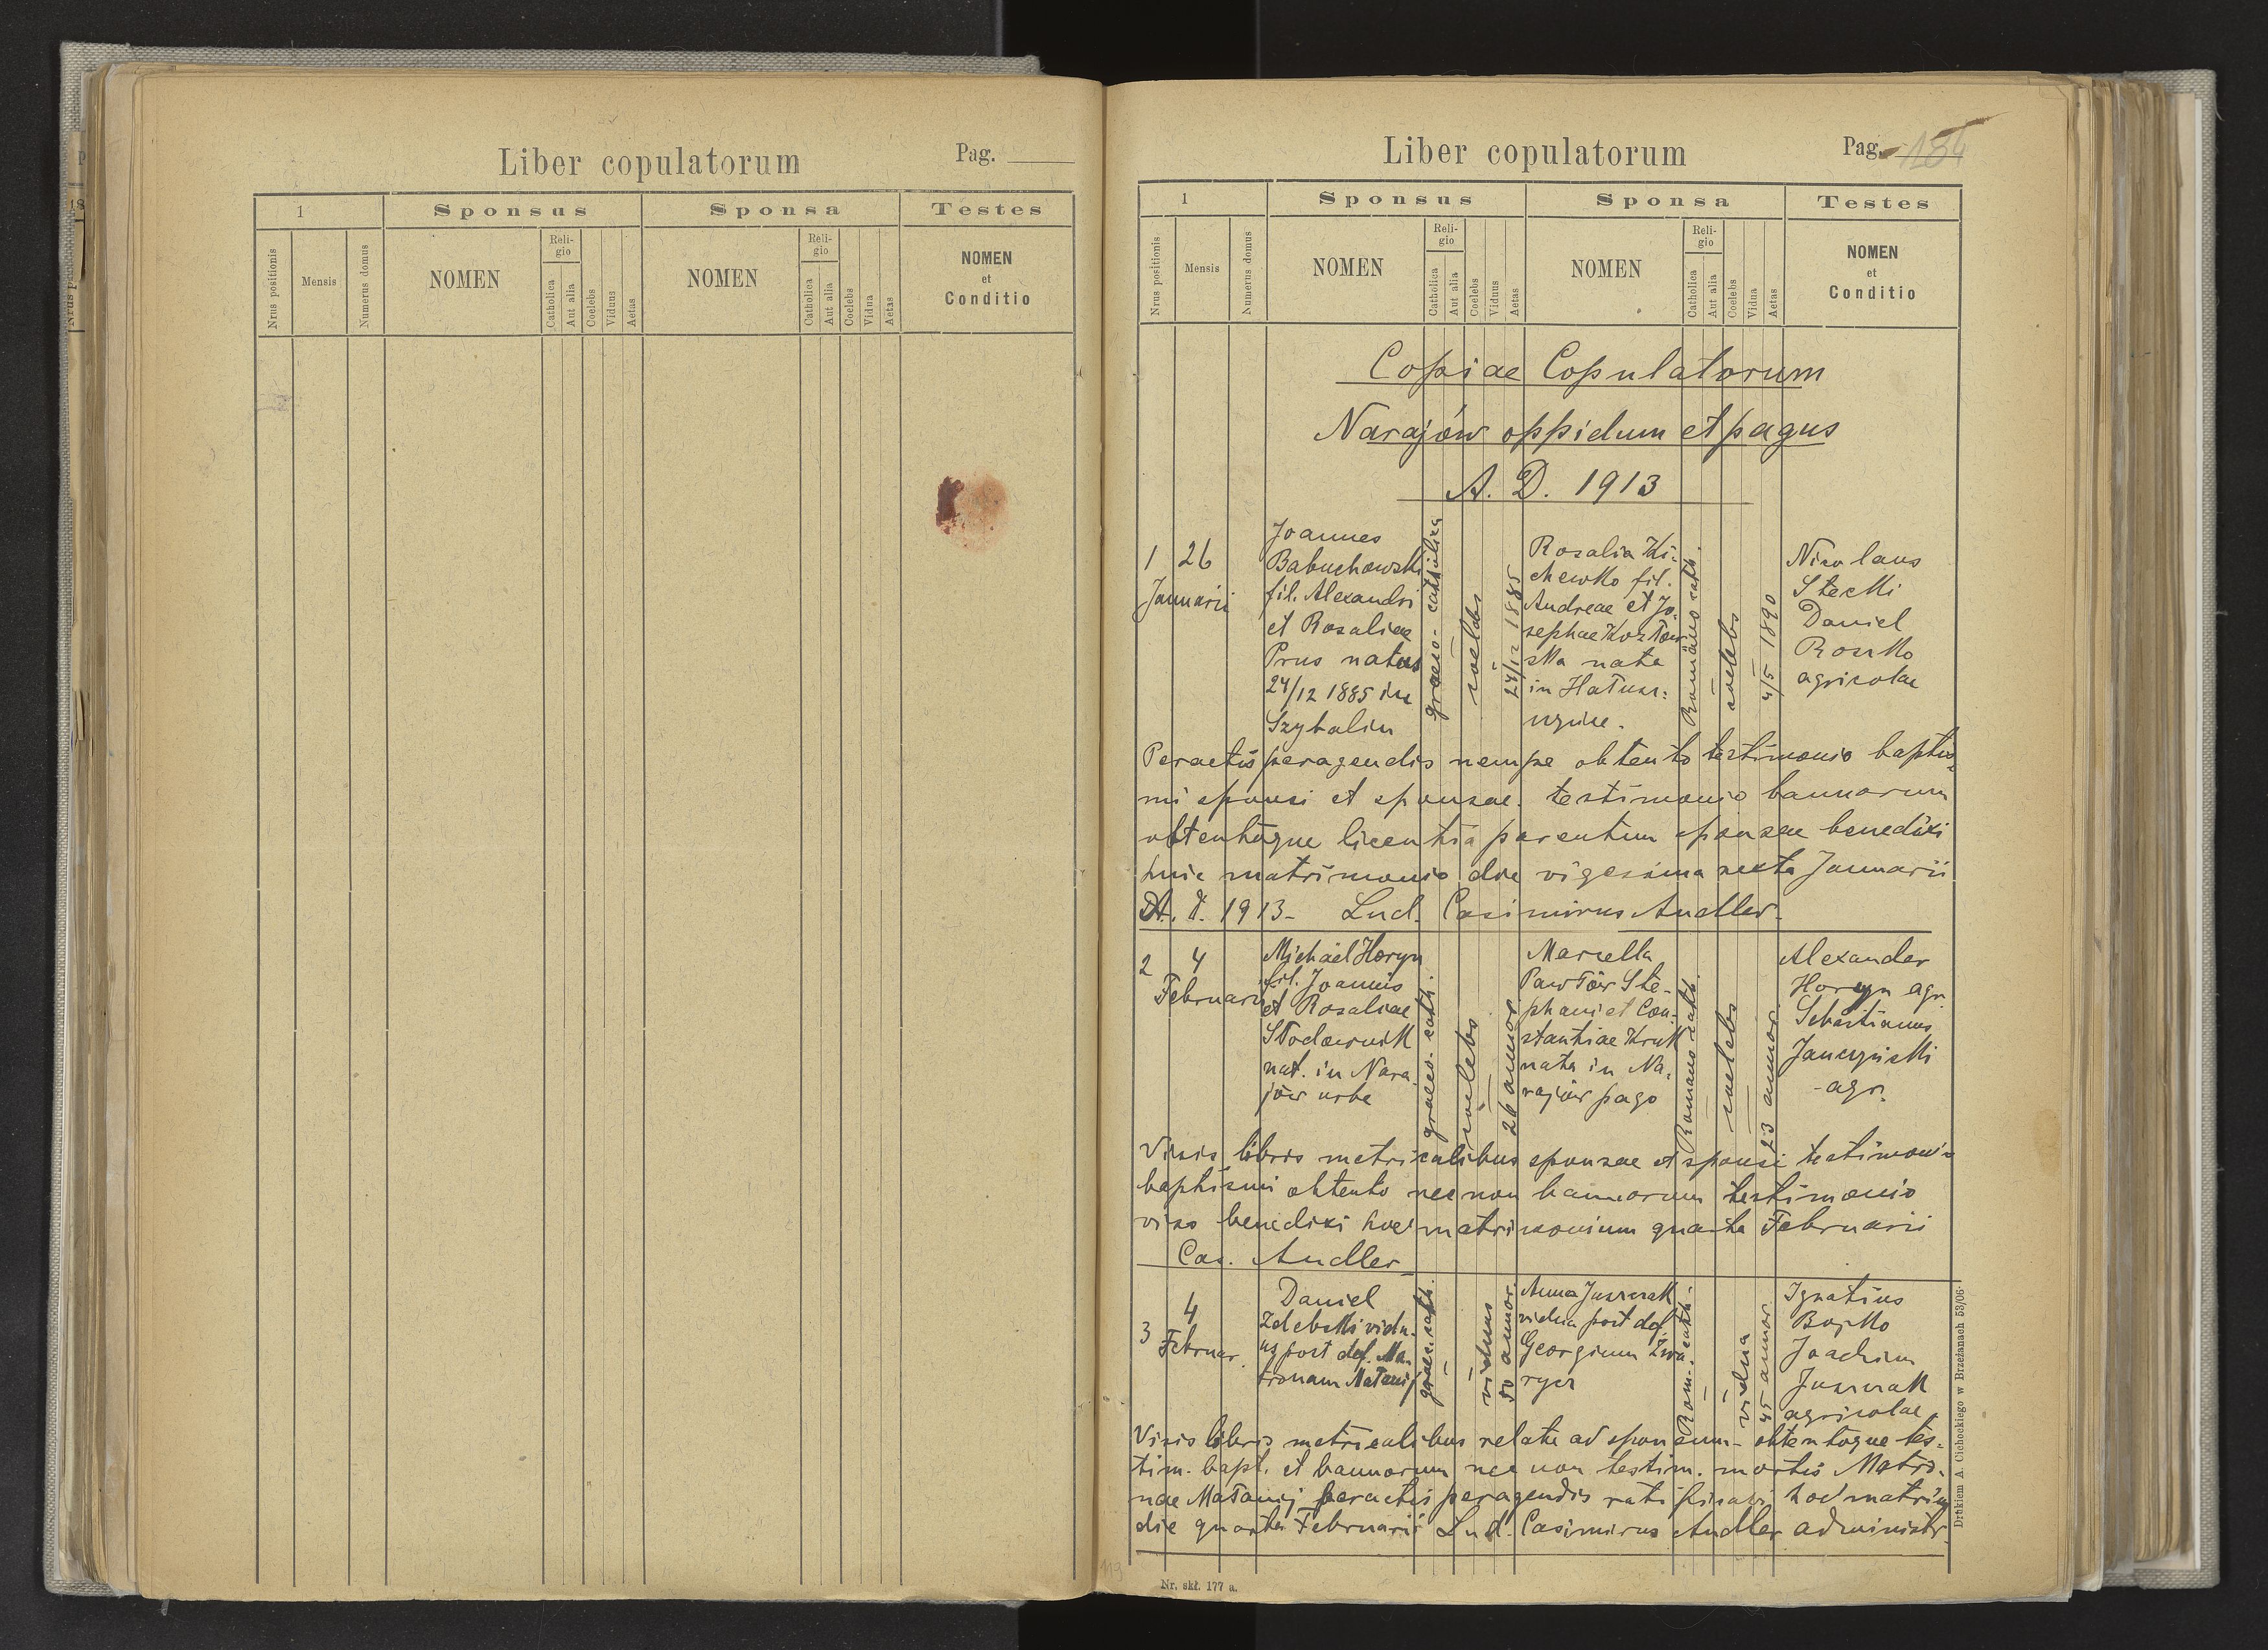 Liber copulatorum
Pag.
1
Sponsus
Sponsa
Testes
Nrus positionis
Mensis
Numerus domus
NOMEN
Reli-
gio
Catholica
Aut alia
Coelebs
Viduus
Aetas
NOMEN
Reli-
gio
Catholica
Aut alia
Coelebs
Vidua
Aetas
NOMEN
et
Conditio
Liber copulatorum
Pag. 184
1
Sponsus
Sponsa
Testes
Nrus positionis
Mensis
Numerus domus
NOMEN
Reli-
gio
Catholica
Aut alia
Coelebs
Viduus
Aetas
NOMEN
Reli-
gio
Catholica
Aut alia
Coelebs
Vidua
Aetas
NOMEN
et
Conditio
Copiae Copulatorum
Narajów oppidum et pagus
A. D. 1913
1
26
Januarii
Joannes
Babuchowski
fil. Alexandri
et Rosaliae
Prus natus
24/12 1885 in
Szybalin
graeco-catholica
coelebs
24/12 1885
Rosalia Ki-
chewko fil.
Andreae et Jo-
sephae Kozłow
ska nata
in Hatusz-
czyńce.
Romano cath.
coelebs
4/5 1890
Nicolaus
Stecki
Daniel
Roszko
agricolae
Peractis peragendis nempe obtento testimonio baptis-
mi sponsi et sponsae. testimonio bannorum
obtentaque licentia parentum sponsae benedixi
huic matrimonio die vigesima sexta Januarii
A. D. 1913- Lud. Casimirus Andler.
2
4
Februarii
Michael Horyn
fil. Joannis
et Rosaliae
Słodownik
nat. in Nara
jów urbe
graeco-cath.
coelebs
26 annor.
Marcella
Pawłów Ste-
phani et Con-
stantiae Kruk
nata in Na-
rajów pago
Romano cath.
coelebs
23 annor.
Alexander
Horyn agr.
Sebastianus
Janczyński
-agr.
Visis libris metricalibus sponsae et sponsi testimonio
baptismi obtento nec non bannorum testimonio
viso benedixi hoc matrimonium quarta Februarii
Cas. Andler
3
4
Februar.
Daniel
Zdebski vidu-
us post def. Ma-
tronam Małanij
graec. cath.
viduus
50 annor.
Anna Juszczak
vidua post def.
Georgium Zwa-
rycz
Rom. cath.
vidua
45 annor.
Ignatius
Bojko
Joachim
Juszczak
agricolae
Visis libris metricalibus relate ad sponsum- obtentoque tes-
tim. bapt. et bannorum nec non testim. mortis Matro-
nae Małanij peractis peragendis ratificavi hoc matrim
die quarta Februarii Lud. Casimirus Andler administr.
Drukiem A. Cichockiego w Brzeżanach 53/06.
Nr. skł. 177 a.
119